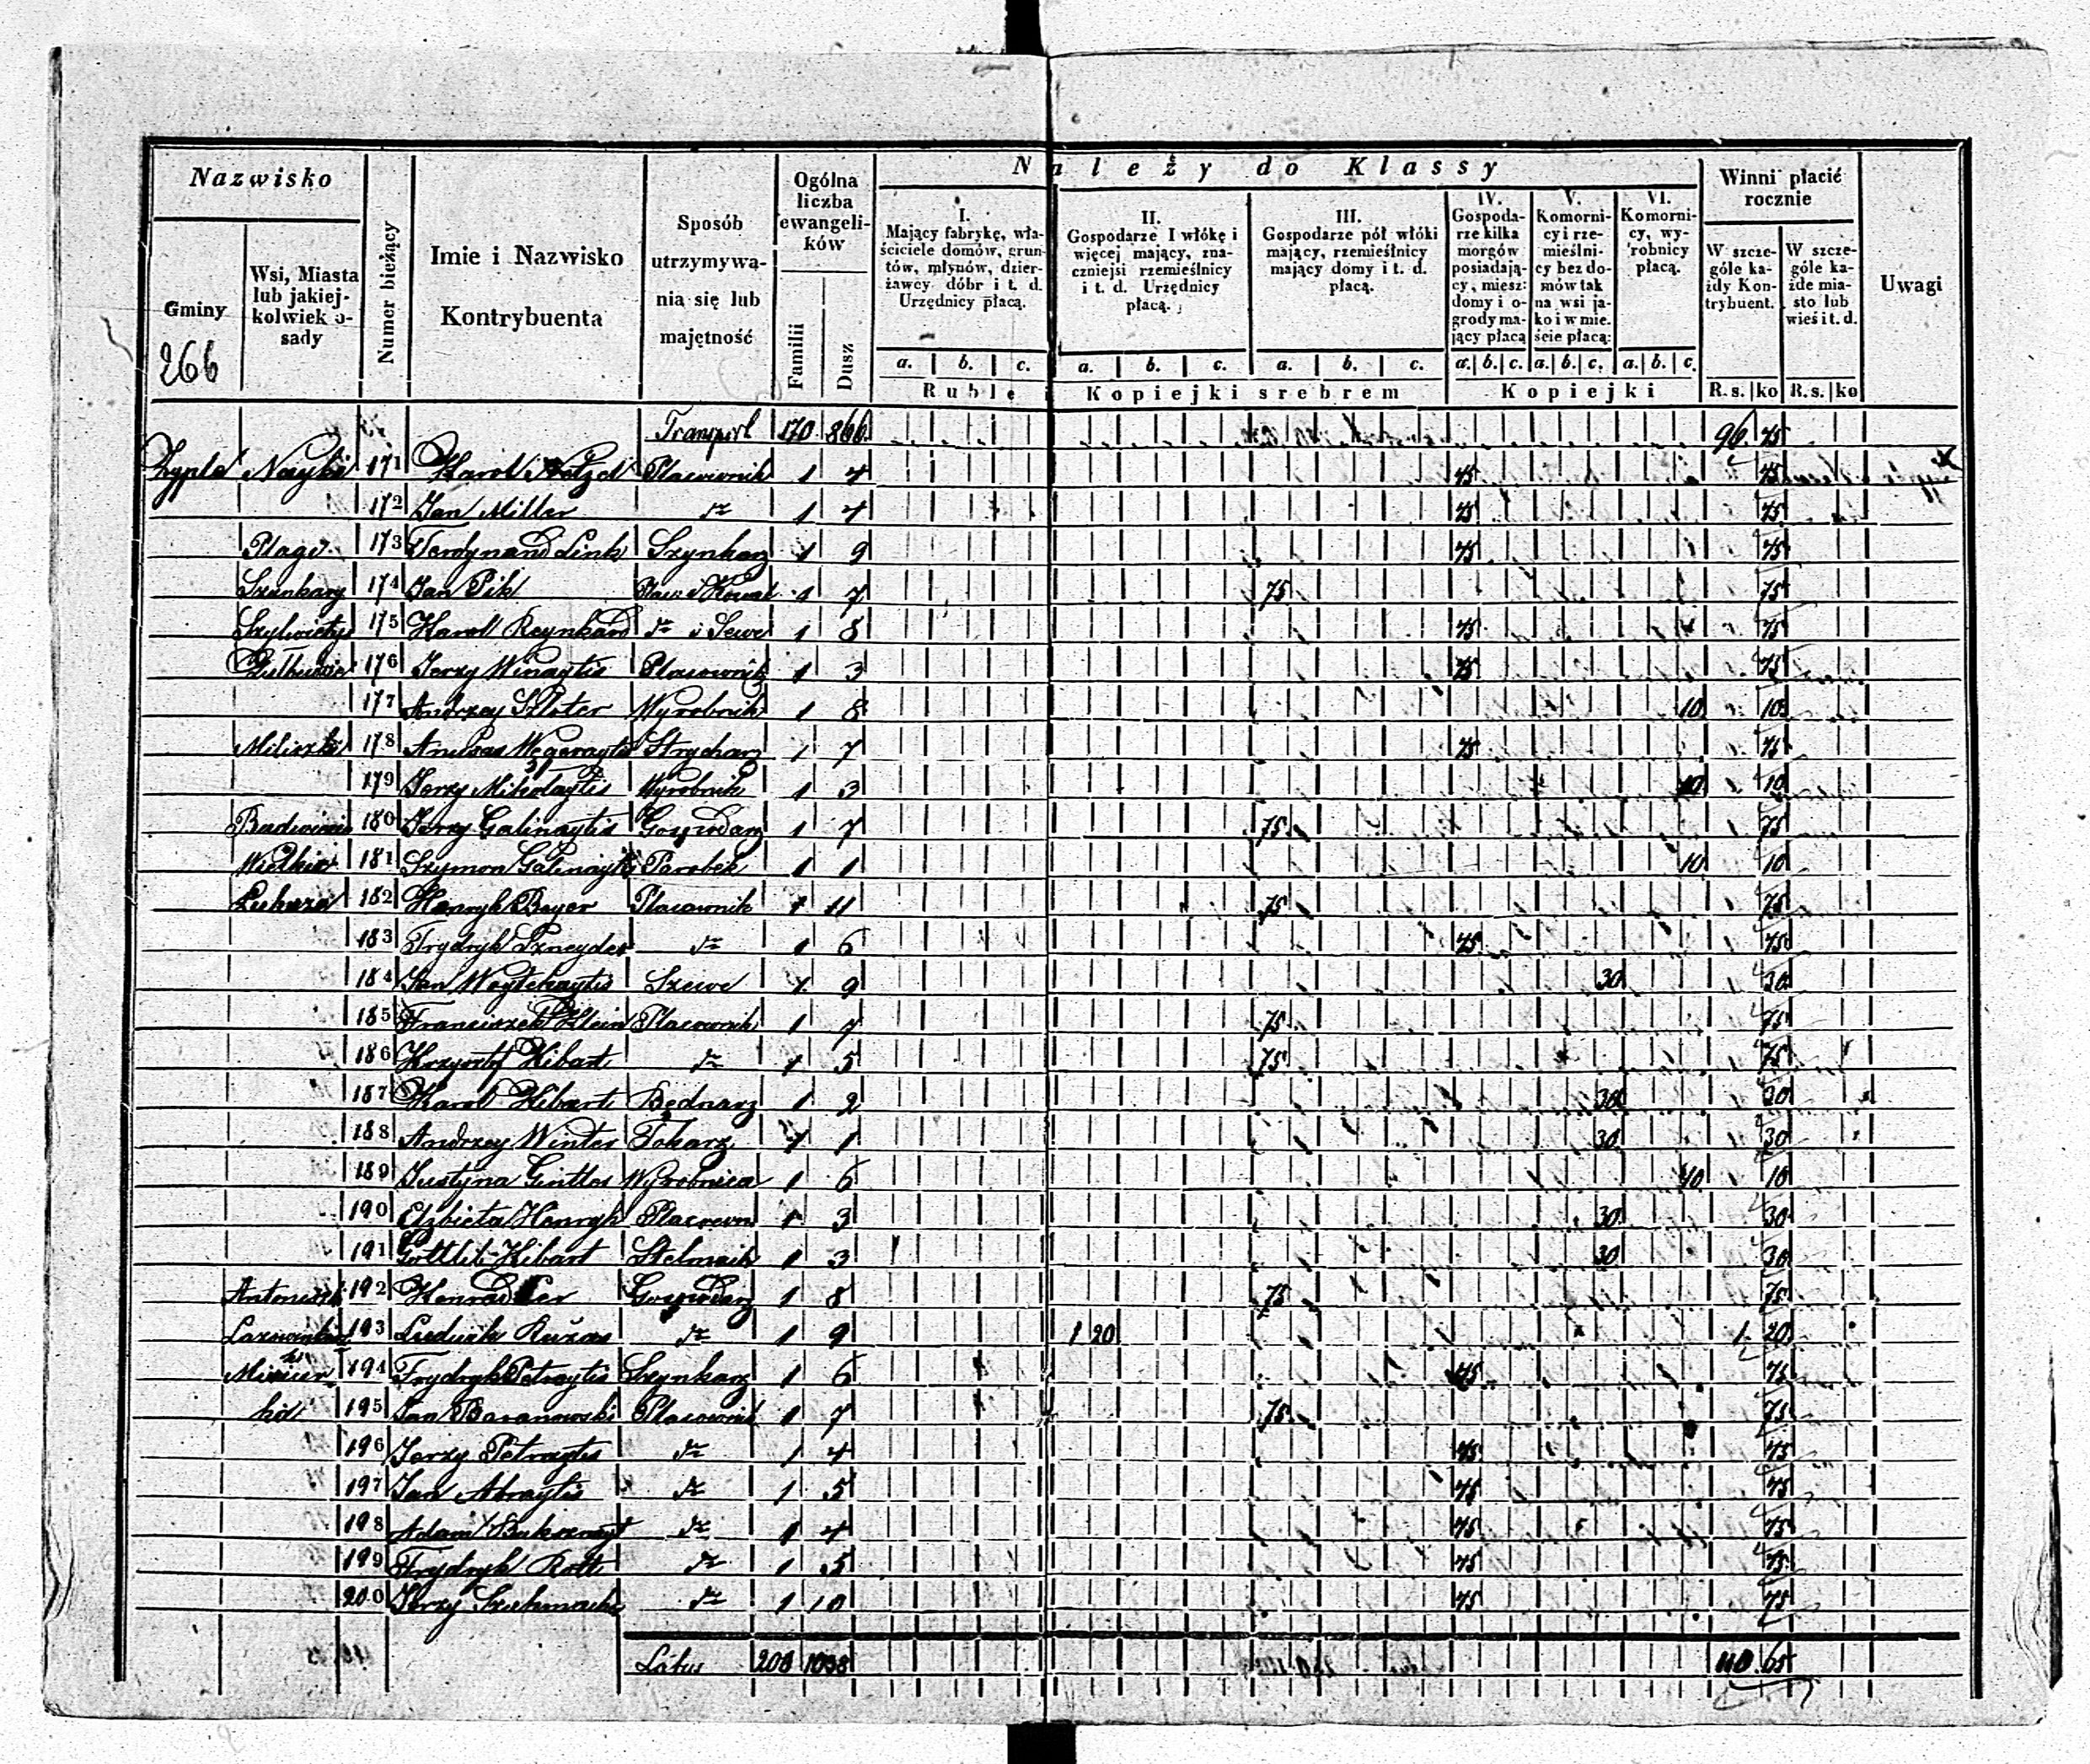 Nazwisko
Gminy
266
Wsi, Miasta lub jakiej-kolwiek o-sady
Numer bieżący
Imie i Nazwisko Kontrybuenta
Sposób utrzymywa-nia się lub majętność
Ogólna liczba ewangeli-ków
Familii
Dusz
Należy do Klassy
I. Mający fabrykę, wła-ściciele domów, grun-tów, młynów, dzier-żawcy dóbr i t. d. Urzędnicy płacą.
II. Gospodarze I włókę i więcej mający, zna-czniejsi rzemieślnicy i t. d. Urzędnicy płacą.
III. Gospodarze pół włóki mający, rzemieślnicy mający domy i t. d. płacą.
IV. Gospoda-rze kilka morgów posiadają-cy, miesz: domy i o-grody ma-jący płacą
V. Komorni-cy i rze-mieślni-cy bez do-mów tak na wsi ja-ko i w mie-ście płacą:
VI. Komorni-cy, wy-robnicy płacą.
Winni płacić rocznie
W szcze-góle ka-żdy Kon-trybuent.
W szcze-góle ka-żde mia-sto lub wieś i t. d.
Uwagi
a. b. c. a. b. c. a. b. c. a. b. c. a. b. c. a. b. c.
Ruble i Kopiejki srebrem Kopiejki R.s. ko R.s. ko
Transport 170 866 96 75
171 Karol Placownik 1 4 75 75
172 Jan Miller dto 1 4 75 75
173 Ferdynand Link Szynkarz 1 9 75 75
174 Jan Pik Kowal 1 7 75 75
175 Karol Reynhard dto i Szewc 1 8 75 75
176 Jerzy Winaytis Placownik 1 3 75 75
177 Andrzey Szloter Wyrobnik 1 8 10 10
Miliszki 178 Strycharz 1 7 75 75
179 Jerzy Mikolaytis Wyrobnik 1 3 10 10
180 Jerzy Galinaytis Gospodarz 1 7 75 75
Wielkie 181 Szymon Galinaytis Parobek 1 1 10 10
182 Henryk Beyer Placownik 1 11 75 75
183 Frydryk Szneyder dto 1 6 75 75
184 Jan Woytekaytis Szewc 1 9 30 30
185 Franciszek Klein Placownik 1 7 75 75
186 Krzysztof Hibart dto 1 5 75 75
187 Karol Hibart Bednarz 1 2 30 30
188 Andrzey Winter Tokarz 1 1 30 30
189 Justyna Wyrobnica 1 6 10 10
190 Elzbieta Henryk 1 3 30 30
191 Gottlib Hibart Stelmach 1 3 30 30
192 Gospodarz 1 8 75 75
193 Ludwik dto 1 9 1 20 1 20
194 Frydryk Petraytis Szynkarz 1 6 75 75
195 Jan Baranowski Placownik 1 7 75 75
196 Jerzy Petraytis dto 1 4 75 75
197 Jan Abraytis dto 1 5 75 75
198 Adam dto 1 4 75 75
199 Frydryk Rott dto 1 5 75 75
200 Jerzy dto 1 10 75 75
Latus 200 1038 110 65